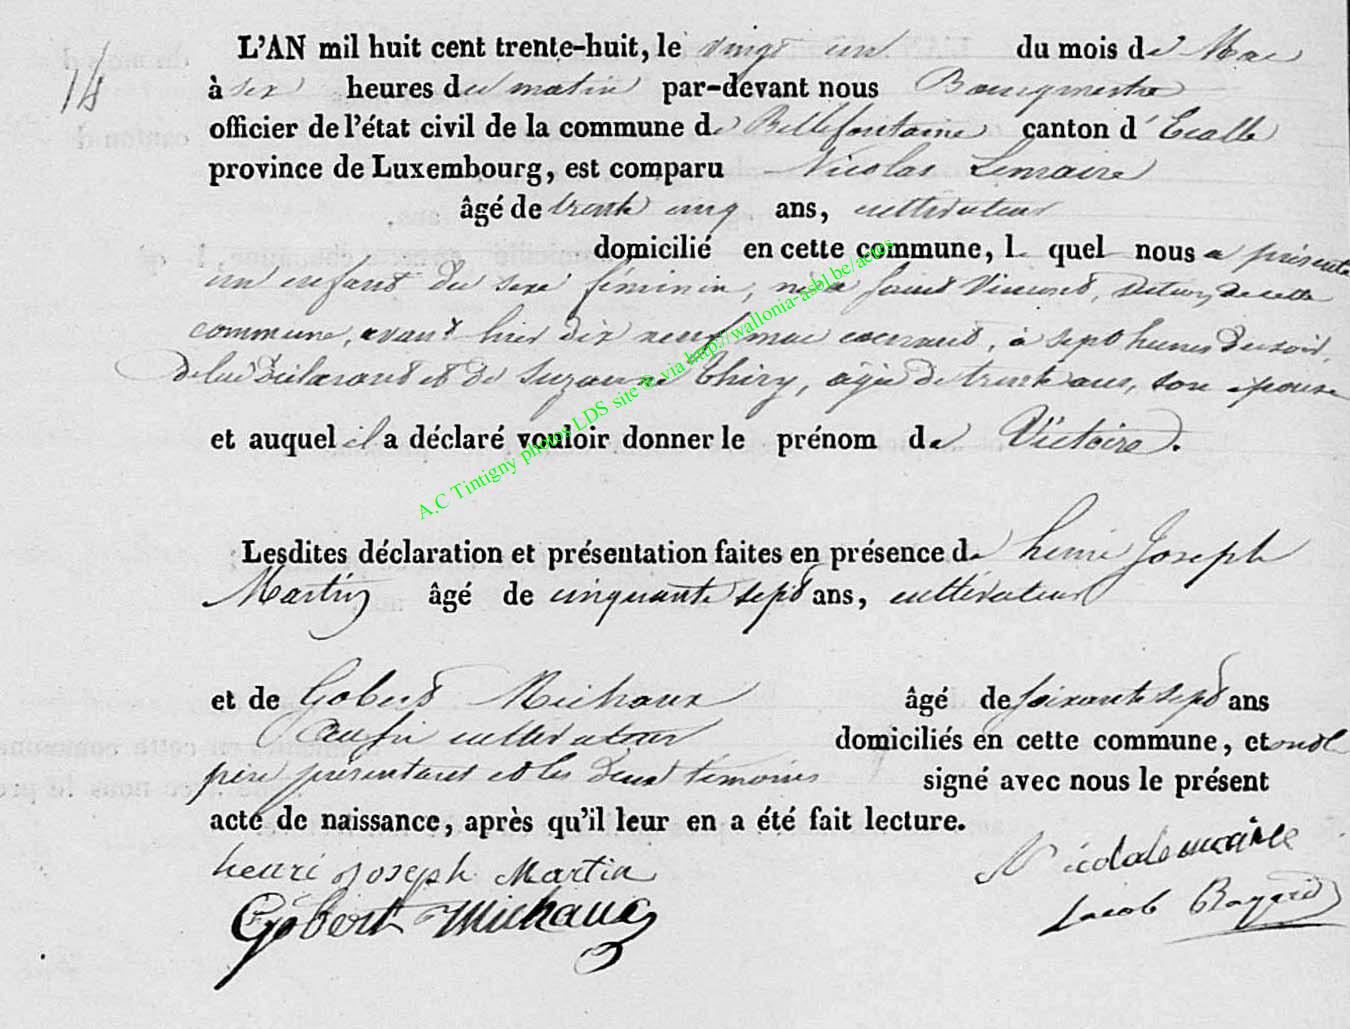 14
L'AN mil huit cent trente-huit, le vingt un du mois de Mai
à six heures du matin par-devant nous Bourgmestre
officier de l'état civil de la commune de Bellefontaine canton d'Etalle
province de Luxembourg, est comparu Nicolas Lemaire
âgé de trente cinq ans, cultivateur
domicilié en cette commune, l quel nous a présenté
un enfant du sexe féminin, né à Saint Vincent, section de cette
commune, avant hier dix neuf mai courant, à sept heures du soir,
de lui déclarant et de Suzanne Thiry, agée de trente ans, son epouse
et auquel il a déclaré vouloir donner le prénom de Victoire.
Lesdites déclaration et présentation faites en présence de henri Joseph
Martin âgé de cinquante sept ans, cultivateur
et de Gobert Michaux âgé de soixante sept ans
aussi cultivateur domiciliés en cette commune, et ont le
père présentant et les deux témoins signé avec nous le présent
acte de naissance, après qu'il leur en a été fait lecture.
henri joseph Martin Nicolalemaire
Gobert Michaux Jacob
A.C Tintigny photos LDS site © via http://wallonia-asbl.be/actes